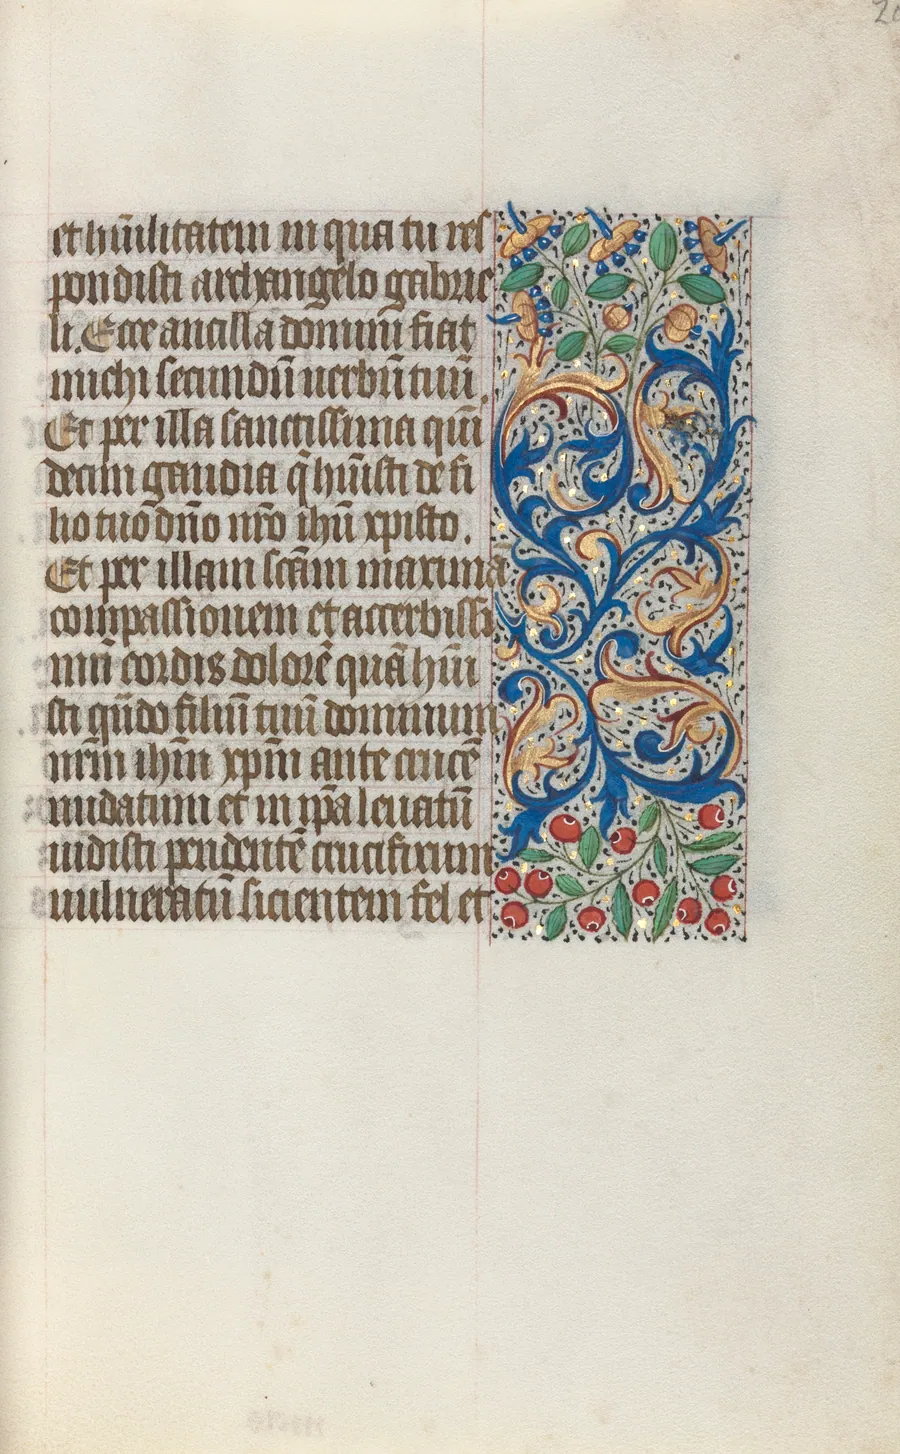 et hūilitatem in qua tu res
pondisti archangelo gabrie
li. Ecce ancilla domini fiat
michi secundū uerbū tuū.
Et per illa sanctissima quī
decim gaudia q̄ hūisti de fi
lio tuo dño nr̄o ihū xpisto.
Et per illam sc̄am maximā
compassionem et accerbissi
mū cordis dolorē quā hūi
sti qn̄do filiū tuū dominum
nr̄m ihm̄ xpm̄ ante crucē
nudatum et in ip̄a leuatū
uidisti pendentē crucifixum
uulneratū sicientem fel et